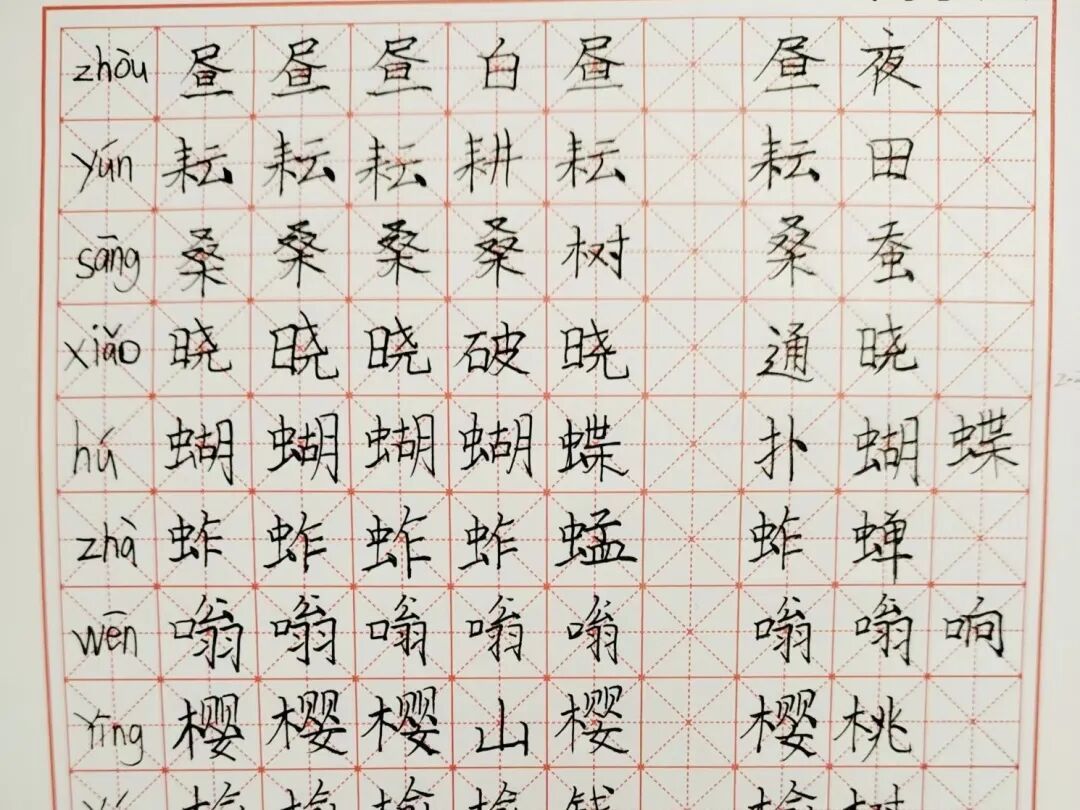 zhòu 昼 昼 昼 白 昼 昼 夜
yún 耘 耘 耘 耕 耘 耘 田
sāng 桑 桑 桑 桑 树 桑 蚕
xiǎo 晓 晓 晓 破 晓 通 晓
hú 蝴 蝴 蝴 蝴 蝶 扑 蝴 蝶
zhà 蚱 蚱 蚱 蚱 蜢 蚱 蝉
wēn 嗡 嗡 嗡 嗡 嗡 嗡 嗡 响
yīng 樱 樱 樱 山 樱 樱 桃
yú 榆 榆 榆 榆 钱 榆 树